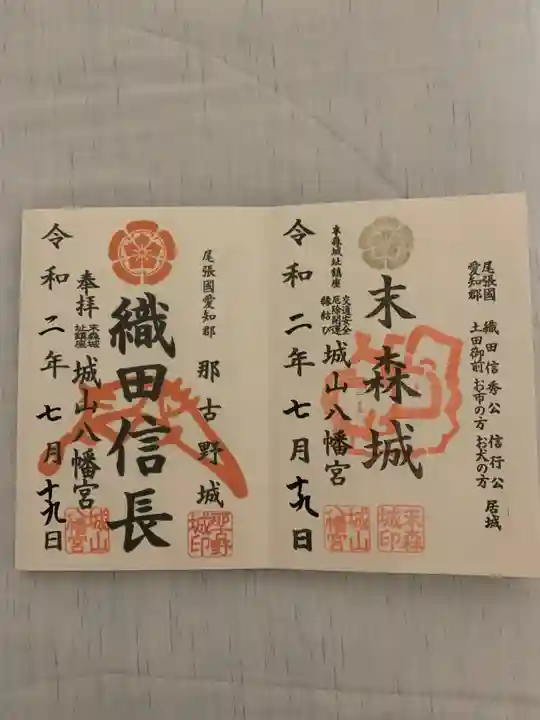 尾張國
愛知郡
織田信秀公 信行公
土田御前 お市の方 お犬の方
居城
末森城
末森城印
末森城址鎮座
交通安全
厄除開運
縁結び
城山八幡宮
城山八幡宮
令和二年七月十九日
尾張國愛知郡
那古野城
城印
織田信長
奉拝
末森城
址鎮座
城山八幡宮
城山八幡宮
令和二年七月十九日